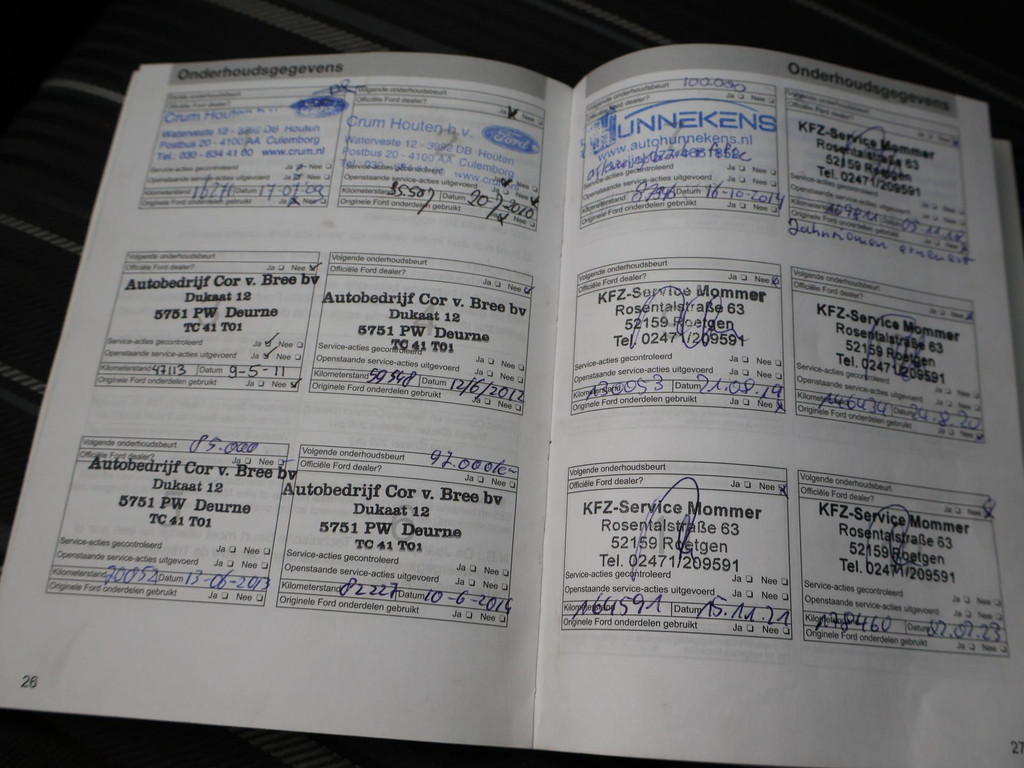 Onderhoudsgegevens
Volgende onderhoudsbeurt
Officiële Ford dealer? Ja Nee
Crum Houten
Ford
Waterveste 12 - 3992 DB Houten
Postbus 20 - 4100 AA Culemborg
Tel.: 030 - 634 41 60 www.crum.nl
Ja Nee
Ja Nee
17 07 09
Originele Ford onderdelen gebruikt Ja Nee
Volgende onderhoudsbeurt
Officiële Ford dealer? Ja Nee
Crum Houten b.v.
Ford
Waterveste 12 - 3992 DB Houten
Postbus 20 - 4100 AA Culemborg
Openstaande service-acties uitgevoerd Ja Nee
Kilometerstand Datum 20-7-2010
Originele Ford onderdelen gebruikt Ja Nee
Volgende onderhoudsbeurt
Officiële Ford dealer? Ja Nee
Autobedrijf Cor v. Bree bv
Dukaat 12
5751 PW Deurne
TC 41 T01
Service-acties gecontroleerd Ja Nee
Openstaande service-acties uitgevoerd Ja Nee
Kilometerstand 47113 Datum 9-5-11
Originele Ford onderdelen gebruikt Ja Nee
Volgende onderhoudsbeurt
Officiële Ford dealer? Ja Nee
Autobedrijf Cor v. Bree bv
Dukaat 12
5751 PW Deurne
TC 41 T01
Service-acties gecontroleerd Ja Nee
Openstaande service-acties uitgevoerd Ja Nee
Kilometerstand Datum 12/6/2012
Originele Ford onderdelen gebruikt Ja Nee
Volgende onderhoudsbeurt 85.000
Officiële Ford dealer? Ja Nee
Autobedrijf Cor v. Bree bv
Dukaat 12
5751 PW Deurne
TC 41 T01
Service-acties gecontroleerd Ja Nee
Openstaande service-acties uitgevoerd Ja Nee
Kilometerstand 70852 Datum 13-06-2013
Originele Ford onderdelen gebruikt Ja Nee
Volgende onderhoudsbeurt 97.000
Officiële Ford dealer? Ja Nee
Autobedrijf Cor v. Bree bv
Dukaat 12
5751 PW Deurne
TC 41 T01
Service-acties gecontroleerd Ja Nee
Openstaande service-acties uitgevoerd Ja Nee
Kilometerstand 82227 Datum 10-6-2014
Originele Ford onderdelen gebruikt Ja Nee
26
Onderhoudsgegevens
Volgende onderhoudsbeurt 100.000
Officiële Ford dealer? Ja Nee
HUNNEKENS
www.autohunnekens.nl
Service-acties gecontroleerd Ja Nee
Openstaande service-acties uitgevoerd Ja Nee
Kilometerstand Datum 16-10-2014
Originele Ford onderdelen gebruikt Ja Nee
Volgende onderhoudsbeurt
Officiële Ford dealer? Ja Nee
KFZ-Service Mommer
Rosentalstraße 63
52159 Roetgen
Tel. 02471/209591
Openstaande service-acties uitgevoerd Ja Nee
Originele Ford onderdelen gebruikt Ja Nee
Zahnriemen erneuert
Volgende onderhoudsbeurt
Officiële Ford dealer? Ja Nee
KFZ-Service Mommer
Rosentalstraße 63
52159 Roetgen
Tel. 02471/209591
Service-acties gecontroleerd Ja Nee
Openstaande service-acties uitgevoerd Ja Nee
Kilometerstand 130053 Datum 21.08.19
Originele Ford onderdelen gebruikt Ja Nee
Volgende onderhoudsbeurt
Officiële Ford dealer? Ja Nee
KFZ-Service Mommer
Rosentalstraße 63
52159 Roetgen
Tel. 02471/209591
Service-acties gecontroleerd Ja Nee
Openstaande service-acties uitgevoerd Ja Nee
Kilometerstand Datum 24.8.20
Originele Ford onderdelen gebruikt Ja Nee
Volgende onderhoudsbeurt
Officiële Ford dealer? Ja Nee
KFZ-Service Mommer
Rosentalstraße 63
52159 Roetgen
Tel. 02471/209591
Service-acties gecontroleerd Ja Nee
Openstaande service-acties uitgevoerd Ja Nee
Kilometerstand Datum 15.11.21
Originele Ford onderdelen gebruikt Ja Nee
Volgende onderhoudsbeurt
Officiële Ford dealer? Ja Nee
KFZ-Service Mommer
Rosentalstraße 63
52159 Roetgen
Tel. 02471/209591
Service-acties gecontroleerd Ja Nee
Openstaande service-acties uitgevoerd Ja Nee
Kilometerstand 178460 Datum 02.02.23
Originele Ford onderdelen gebruikt Ja Nee
27